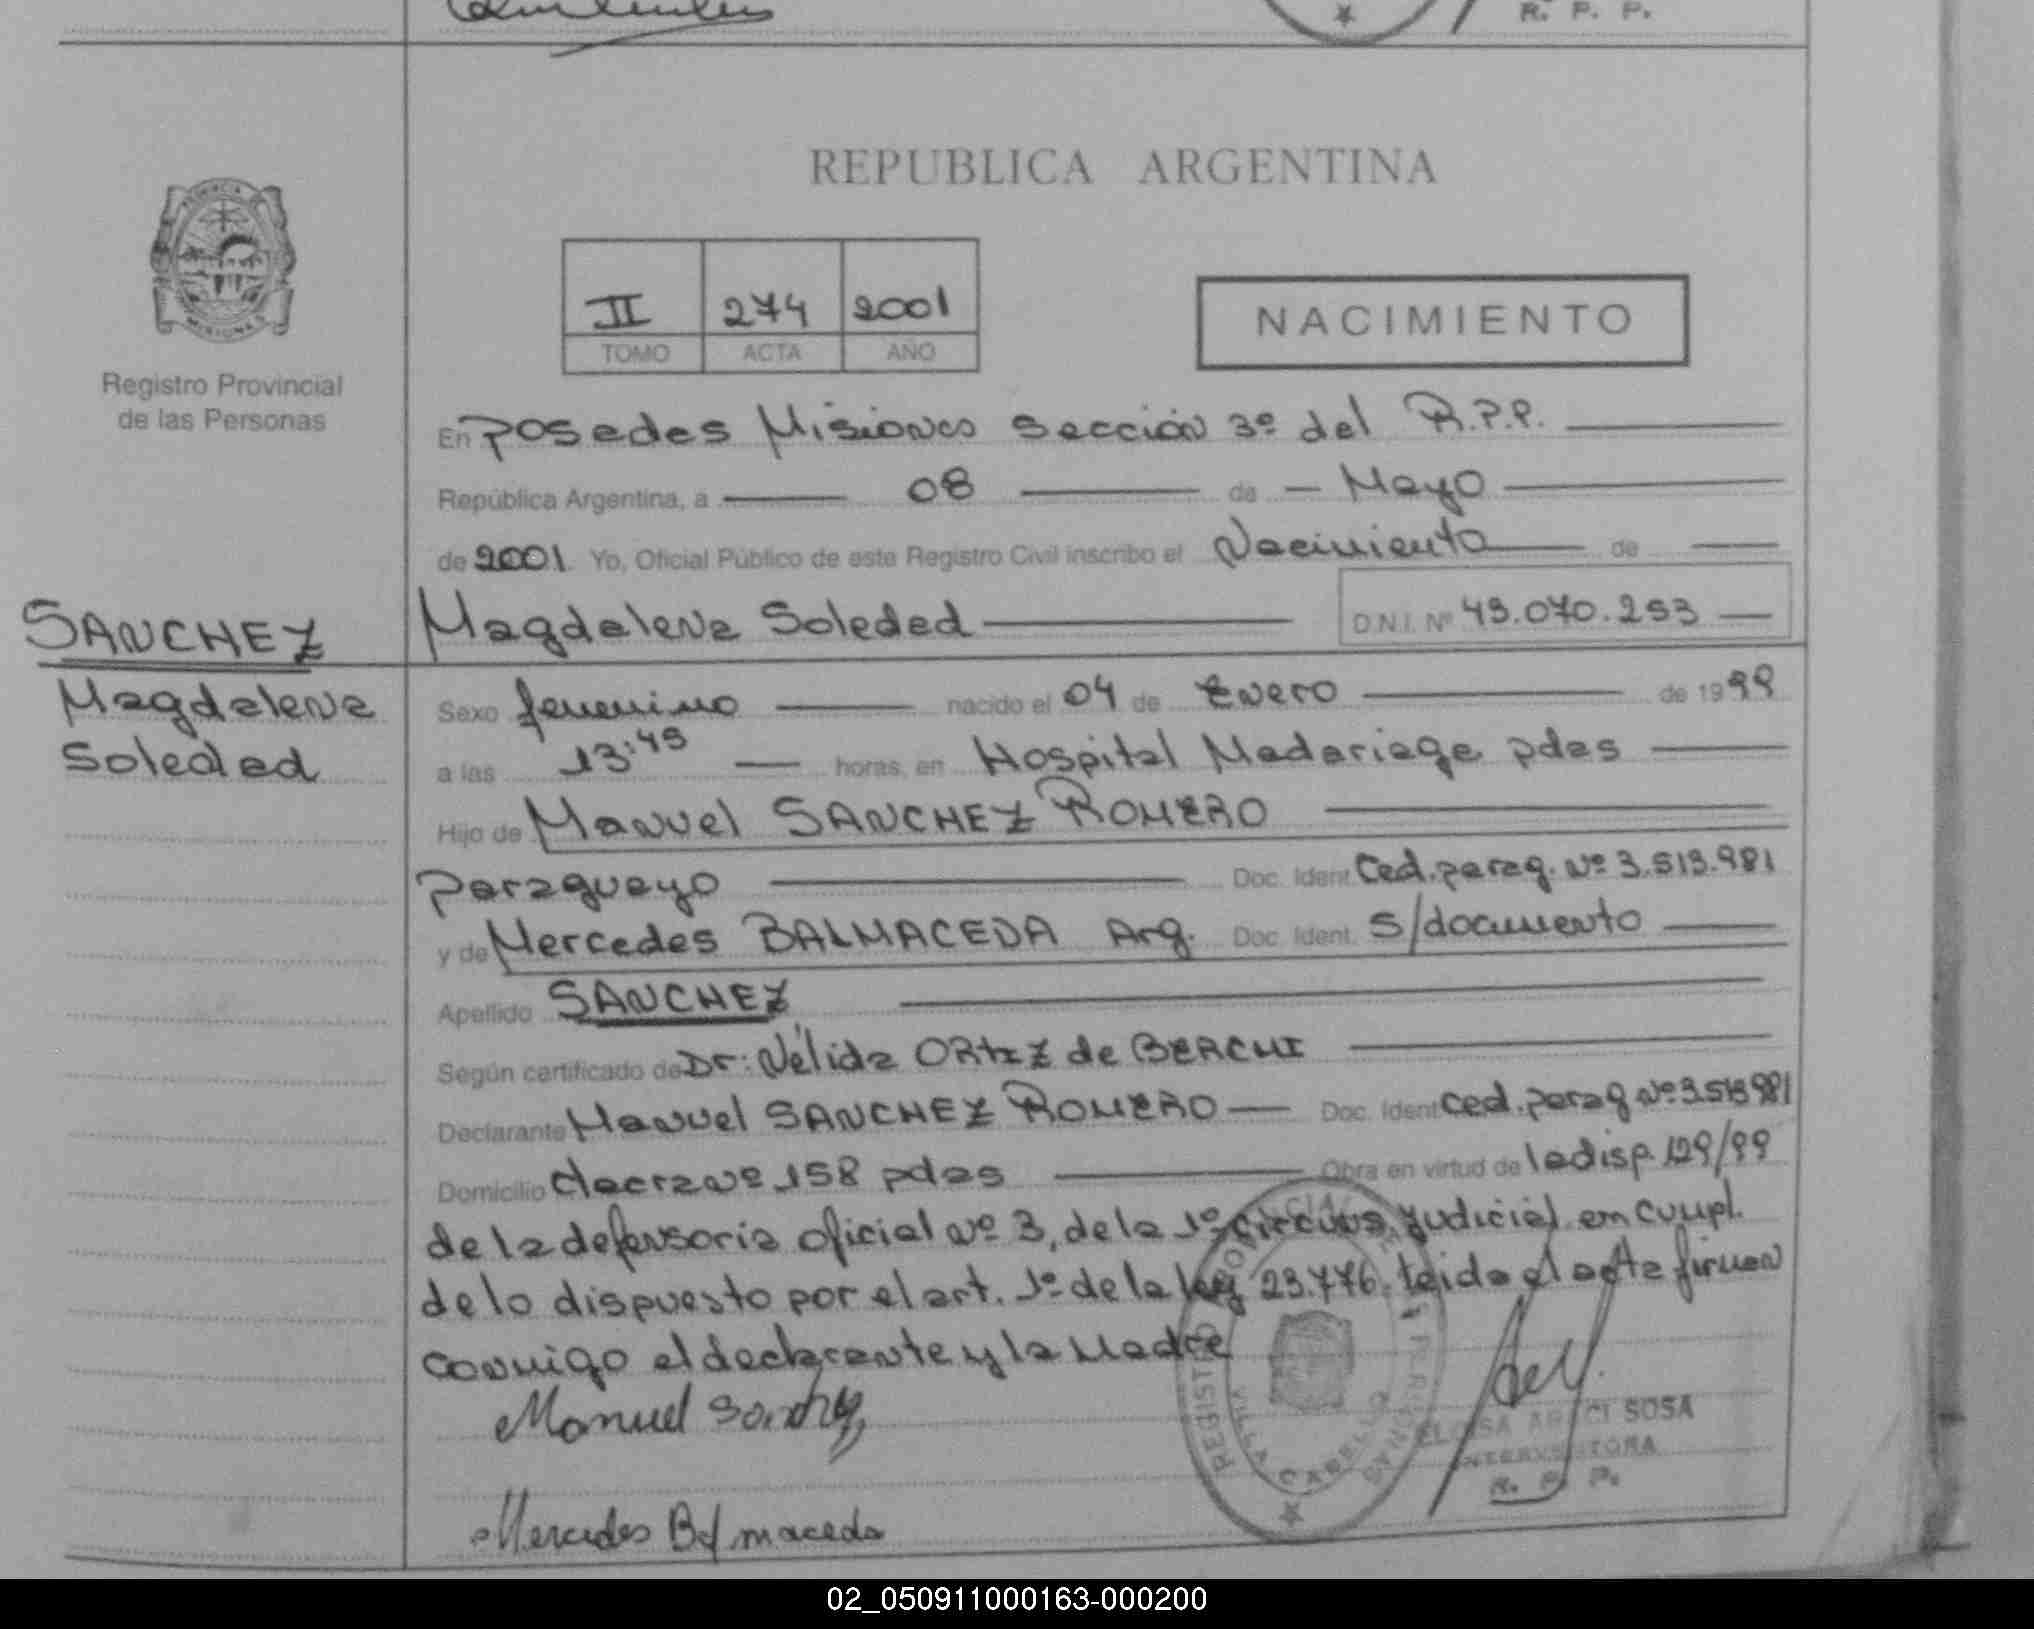 R. P. P.
REPUBLICA ARGENTINA
PROVINCIA
MISIONES
Registro Provincial
de las Personas
II 274 2001
TOMO ACTA AÑO
NACIMIENTO
En Posadas Misiones Sección 3º del R.P.P.
República Argentina, a 08 de Mayo
de 2001 Yo, Oficial Público de este Registro Civil inscribo el Nacimiento de
SANCHEZ
Magdalena Soledad
Magdalena Soledad D.N.I. Nº 43.070.253
Sexo femenino nacido el 04 de Enero de 1999
a las 13:45 horas, en Hospital Madariaga pdas
Hijo de Manuel SANCHEZ ROMERO
Paraguayo Doc. Ident. Ced. parag. Nº 3.513.981
y de Mercedes BALMACEDA Arg. Doc. Ident. S/documento
Apellido SANCHEZ
Según certificado de Dr: Nélida ORTIZ de BERCHI
Declarante Manuel SANCHEZ ROMERO Doc. Ident. Ced. parag Nº 3.513.981
Domicilio chacra Nº 158 pdas Obra en virtud de la disp. 129/99
de la defensoria oficial Nº 3, de la 1º circuns. judicial en cumpl.
de lo dispuesto por el art. 1º de la ley 23.776. leida el acta firman
conmigo el declarante y la Madre
Manuel Sanchez
Mercedes Balmaceda
VILLA CABELLO
SOSA
INTERVENTORA
R. P. P.
02_050911000163-000200